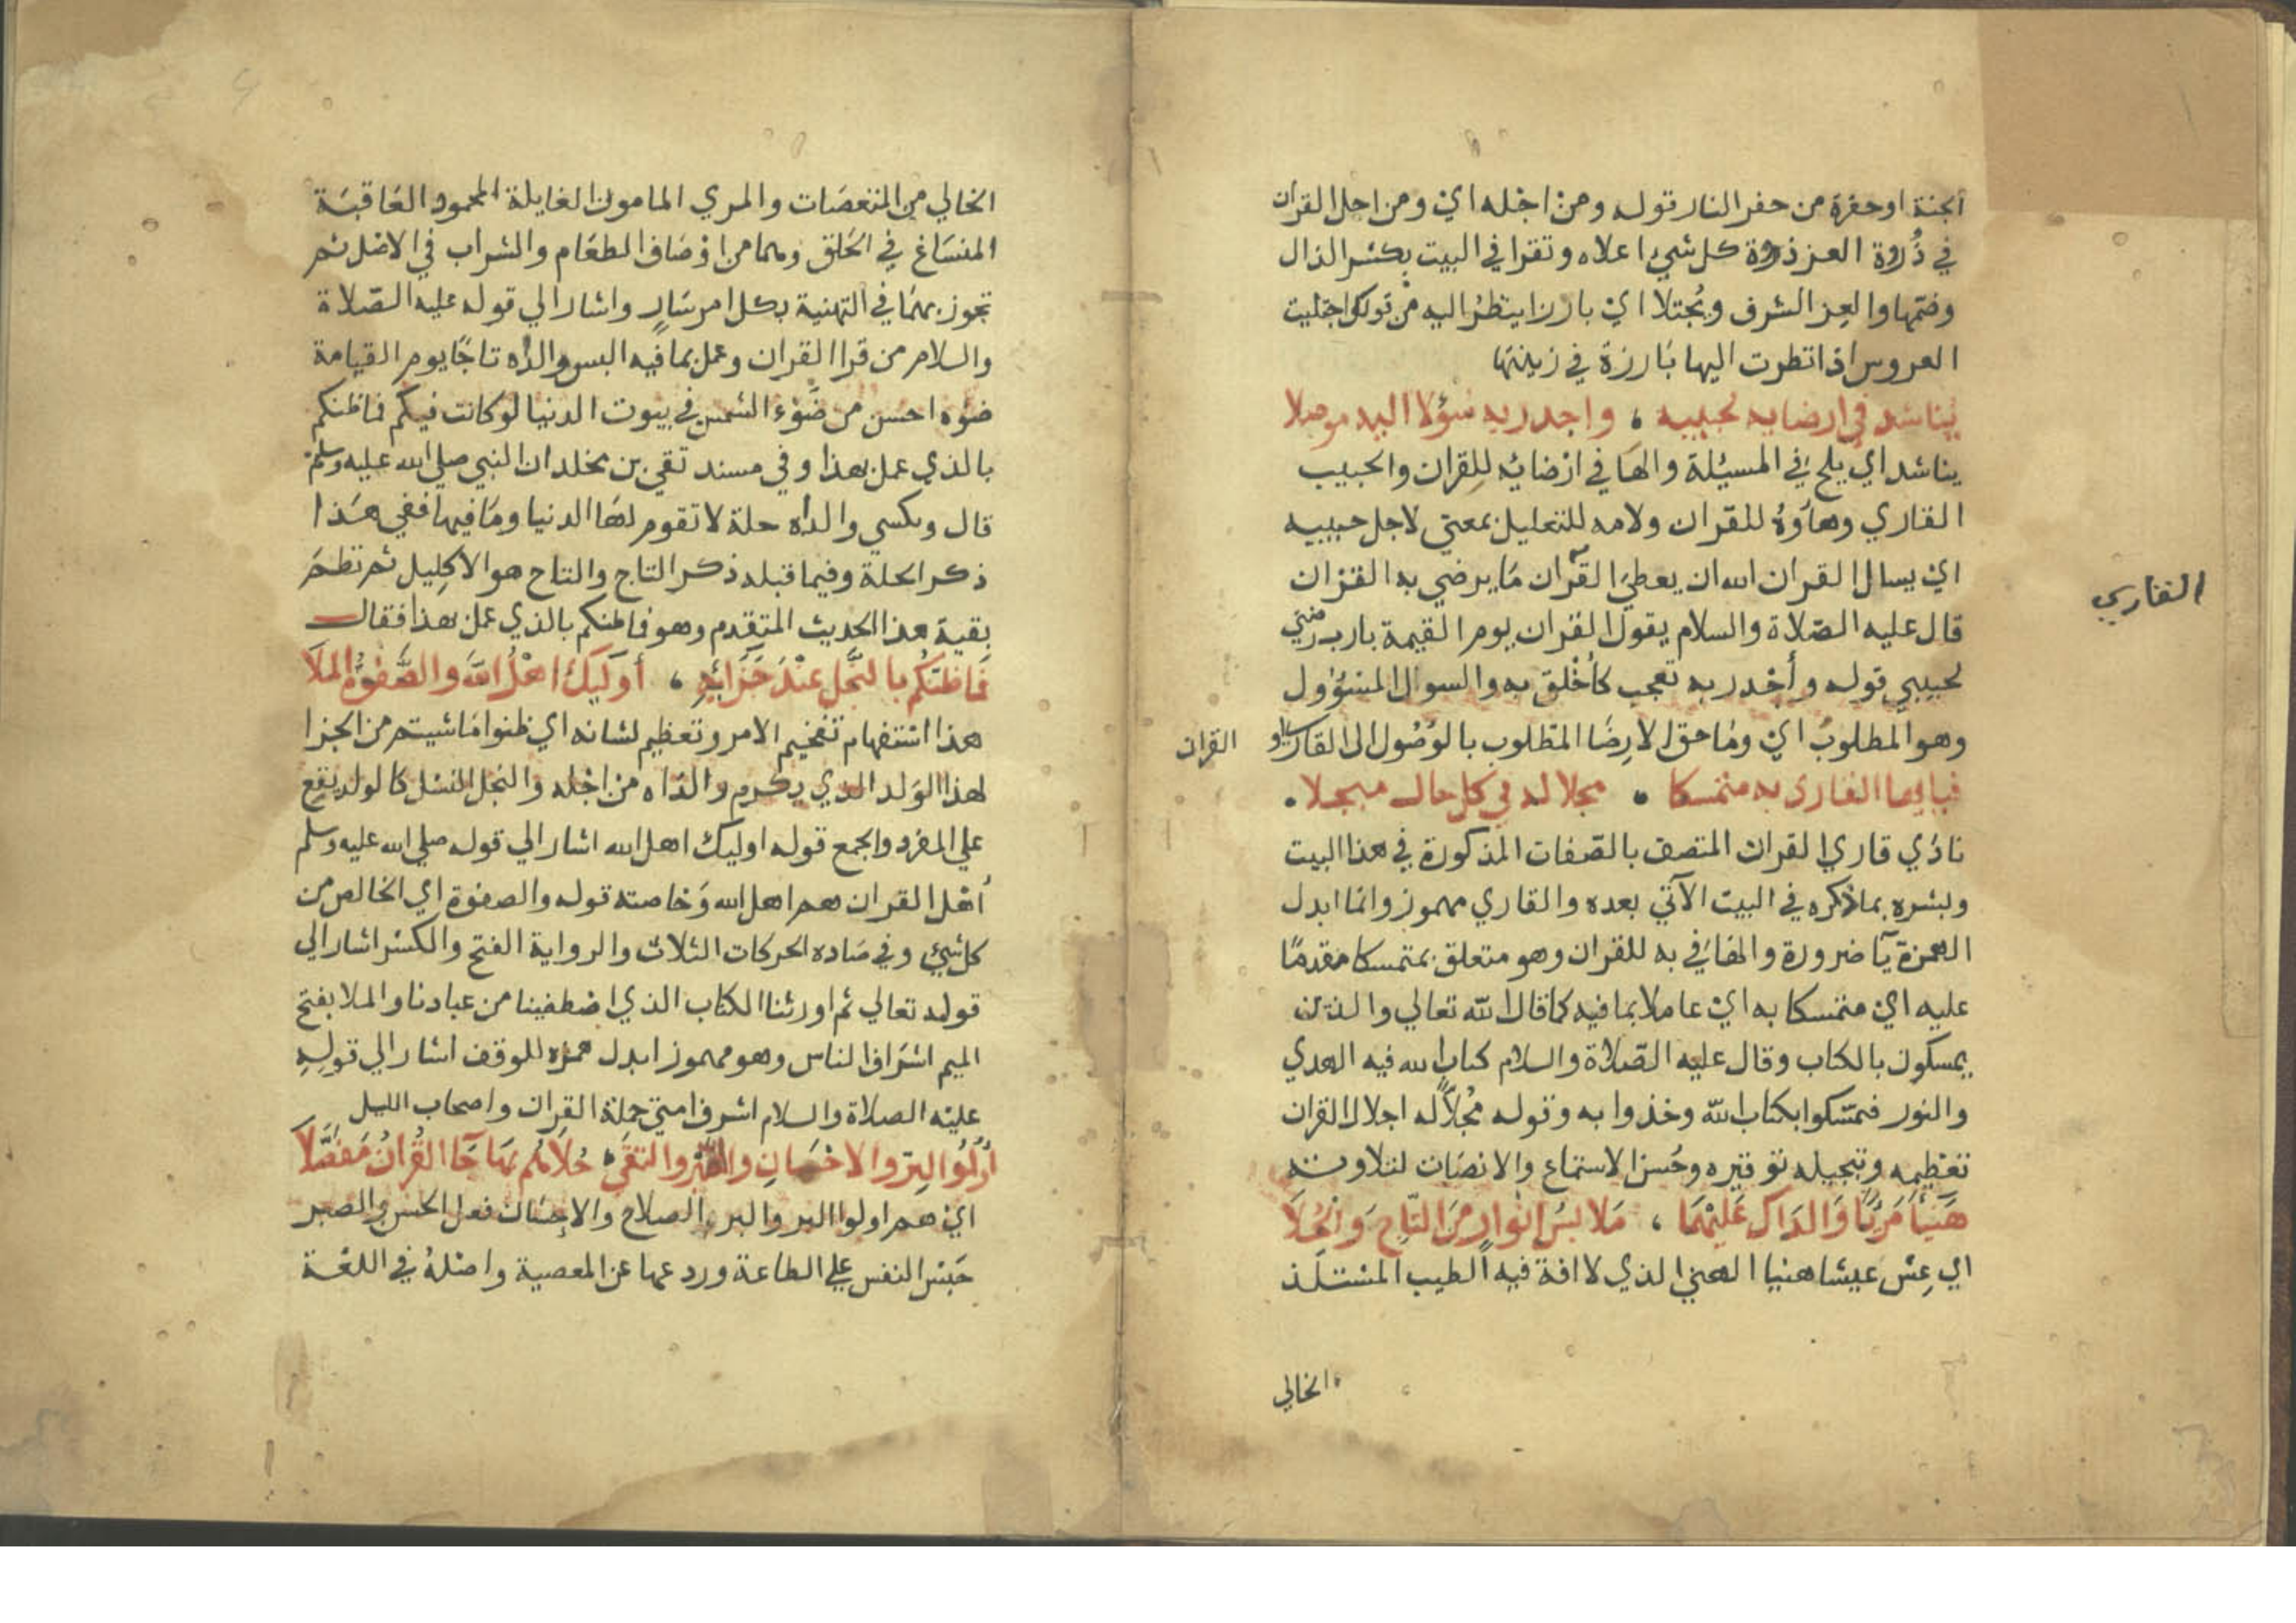 الجنة او حفرة من حفر النار قوله ومن اجله اي ومن اجل القران
في ذُروة العز ذروة كل شي اعلاه وتقرا في البيت بكسر الذال
وضمها والعِز الشرف ويُجتلا اي بارزا ينظرُ اليه من قولك اجتليت
العروس اذا نظرت اليها بَارزة في زينتها
يناشد في ارضايه لحبيبه ، واجدر به سؤلا اليه موصلا
يناشد اي يلح في المسيُلة والهَا في ارْضائه للقران والحبيب
القاري وهاؤهُ للقران ولامه للتعليل بمعني لاجل حبيبه
اي يسال القران الله ان يعطيَ القرآن مَا يرضي به القران
القاري
قال عليه الصّلاة والسلام يقول القران يوم القيمة يارب رضني
لحبيبي قوله وأجْدر به تعجب كأخْلق به والسوال المسْؤول
وهو المطلوبُ اي ومَا احق الارضَا المطلوب بالوُصُول الى القاري او
القران
فيا ايها القاري به متمسكا ، مجلا له في كل حال مبجلا .
نادَي قاري القران المتصف بالصّفات المذكورة في هذا البيت
وبشره بما ذكره في البيت الآتي بعده والقاري مهموز وانما ابدل
الهمزة يآ ضرورة والهَا في به للقران وهو متعلق بمتمسكا مقدمًا
عليه اي متمسكا به اي عاملا بما فيه كما قال اللّه تعالي والذين
يمسكون بالكتاب وقال عليه الصّلاة والسلام كتاب الله فيه الهدي
والنور فتمسّكوا بكتاب اللّه وخذوا به وقوله مُجلاًّ له اجلال القران
تعْظيمه وتبجيله توقيره وحُسن الاستماع والانصَات لتلاوته
هَنئًا مَرئًا وَالدَاك عَليْهمَا ، مَلابسُ انْوارٍ مِنَ التّاجِ وَالحُلاَ
اي عِش عيشا هنيا الهني الذي لا افة فيه الطيب المسْتلَذ
الخالي
الخالي من المنغصَات والمري المامون الغايلة المحمود العَاقبَة
المنسَاغ في الحَلق وهما من اوْصَاف الطعَام والشراب في الاصْل ثم
تجوز بهمَا في التهنية بكل امر سَارٍ واشار الي قوله عليه الصّلاة
والسلام من قرا القران وعمل بما فيه البس والداه تاجًا يوم القيامة
ضوُه احسن من ضَوْء الشمس في بيوت الدنيا لو كانت فيكم فما ظنكم
بالذي عمل بهذا وفي مسند تقي بن مخلد ان النبي صلي الله عليه وسلم
قال ويكسي والداه حلة لا تقوم لهَا الدنيا ومَا فيها ففي هَذا
ذكر الحلة وفيما قبله ذكر التاج والتاج هو الاكِليل ثم نظمَ
بقية هذا الحديث المتقدم وهو فما ظنكم بالذي عمل بهذا فقال
فَمَا ظنّكُم بالنّجْلِ عنْدَ جَزَائِهِ ، أوليكَ اهْلُ اللّهِ والصَّفْوَةُ المَلاَ
هذا اسْتفهام تفخيم الامر وتعظيم لشانه اي ظنوا مَا شيتم من الجزا
لهذا الوَلد الذي يكرم والدَاه من اجْله والنجل النسْل كالولد يقع
علي المفرد والجمع قوله اوليك اهل الله اشار الي قوله صلي الله عليه وسلم
أهْل القران هم اهل الله وَخاصته قوله والصفوة اي الخالص من
كل شيئ وفي صَاده الحركات الثلاث والرواية الفتح والكسْر اشار الي
قوله تعالي ثم اورثنا الكتاب الذي اصْطفينا من عبادنا والملا بفتح
الميم اشرَاف الناس وهو مهموز ابدل همزه للوقف اشار الي قوله
عليْه الصلاة والسلام اشرف امتي حملة القران واصحاب الليل
أُولُوا البِرّ والاحْسَانِ والصَّبْر والتقَى ، حُلاَهُم بهَا جَآ القُرانُ مُفَصَّلاَ
اي هم اولوا البر والبر الصلاح والاحِسَان فعل الحسن والصبر
حَبْس النفس علي الطاعة وردعها عن المعصية واصْلهُ في اللغَة